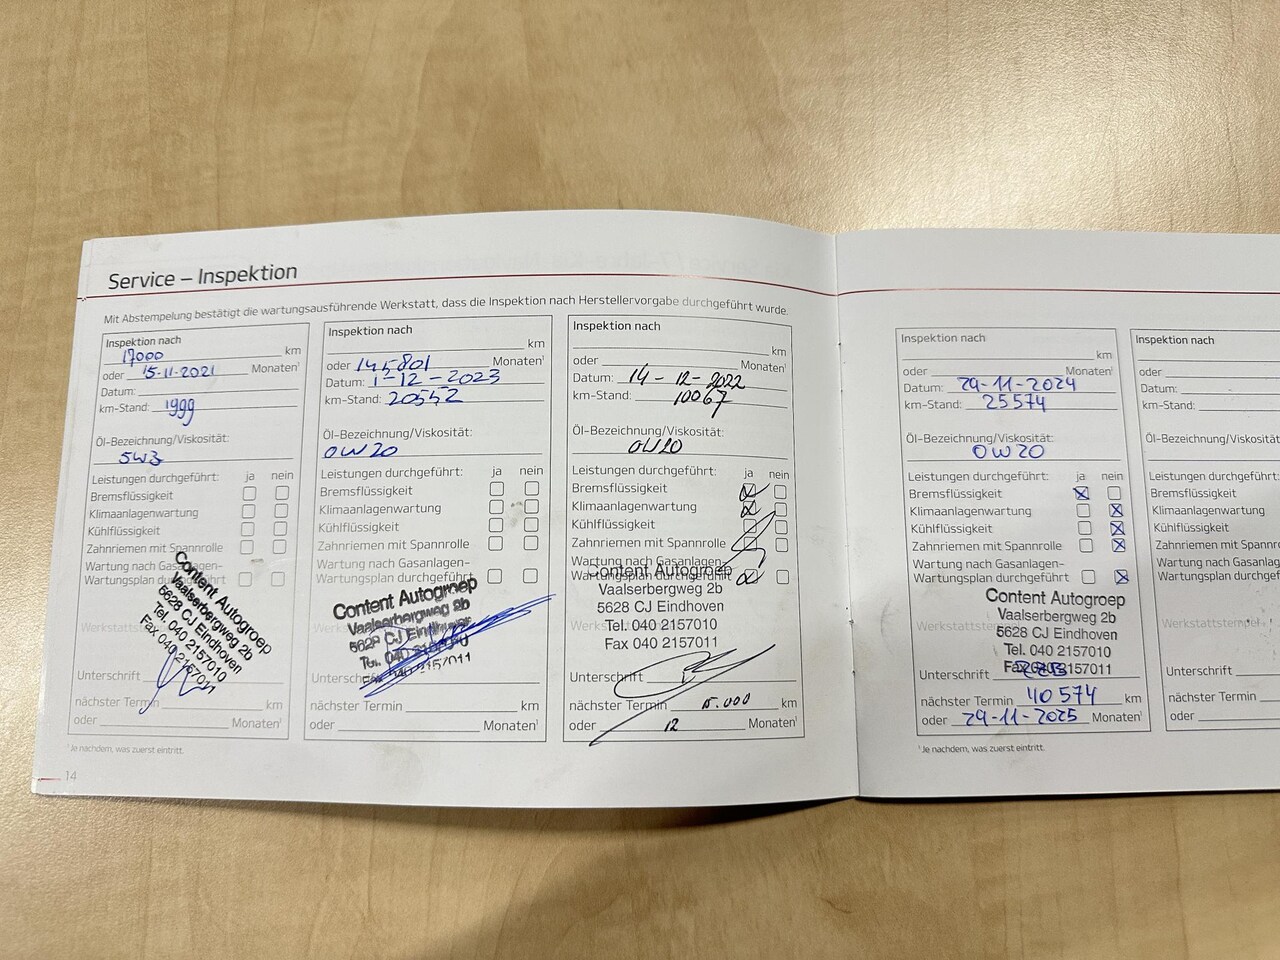 Service – Inspektion
Mit Abstempelung bestätigt die wartungsausführende Werkstatt, dass die Inspektion nach Herstellervorgabe durchgeführt wurde.
Inspektion nach
17000 km
oder 15-11-2021 Monaten¹
Datum:
km-Stand: 1999
Öl-Bezeichnung/Viskosität:
5W3
Leistungen durchgeführt: ja nein
Bremsflüssigkeit
Klimaanlagenwartung
Kühlflüssigkeit
Zahnriemen mit Spannrolle
Wartung nach Gasanlagen-
Wartungsplan durchgeführt
Content Autogroep
Vaalserbergweg 2b
5628 CJ Eindhoven
Tel. 040 2157010
Fax 040 2157011
Werkstattstempel
Unterschrift
nächster Termin km
oder Monaten¹
¹Je nachdem, was zuerst eintritt.
14
Inspektion nach
km
oder 145801 Monaten¹
Datum: 1-12-2023
km-Stand: 20552
Öl-Bezeichnung/Viskosität:
0W20
Leistungen durchgeführt: ja nein
Bremsflüssigkeit
Klimaanlagenwartung
Kühlflüssigkeit
Zahnriemen mit Spannrolle
Wartung nach Gasanlagen-
Wartungsplan durchgeführt
Content Autogroep
Vaalserbergweg 2b
5628 CJ Eindhoven
Tel. 040 2157010
Fax 040 2157011
Unterschrift
nächster Termin km
oder Monaten¹
Inspektion nach
km
oder Monaten¹
Datum: 14-12-2022
km-Stand: 10067
Öl-Bezeichnung/Viskosität:
0W20
Leistungen durchgeführt: ja nein
Bremsflüssigkeit
Klimaanlagenwartung
Kühlflüssigkeit
Zahnriemen mit Spannrolle
Wartung nach Gasanlagen-
Wartungsplan durchgeführt
Content Autogroep
Vaalserbergweg 2b
5628 CJ Eindhoven
Tel. 040 2157010
Fax 040 2157011
Unterschrift
nächster Termin 15.000 km
oder 12 Monaten¹
Inspektion nach
km
oder Monaten¹
Datum: 29-11-2024
km-Stand: 25574
Öl-Bezeichnung/Viskosität:
0W20
Leistungen durchgeführt: ja nein
Bremsflüssigkeit
Klimaanlagenwartung
Kühlflüssigkeit
Zahnriemen mit Spannrolle
Wartung nach Gasanlagen-
Wartungsplan durchgeführt
Content Autogroep
Vaalserbergweg 2b
5628 CJ Eindhoven
Tel. 040 2157010
Fax 040 2157011
Unterschrift
nächster Termin 40574 km
oder 29-11-2025 Monaten¹
¹Je nachdem, was zuerst eintritt.
Inspektion nach
oder
Datum:
km-Stand:
Öl-Bezeichnung/Visko
Leistungen durchgeführt:
Bremsflüssigkeit
Klimaanlagenwartung
Kühlflüssigkeit
Zahnriemen mit Spannro
Wartung nach Gasanlage
Wartungsplan durchgefüh
Werkstattstempel
Unterschrift
nächster Termin
oder